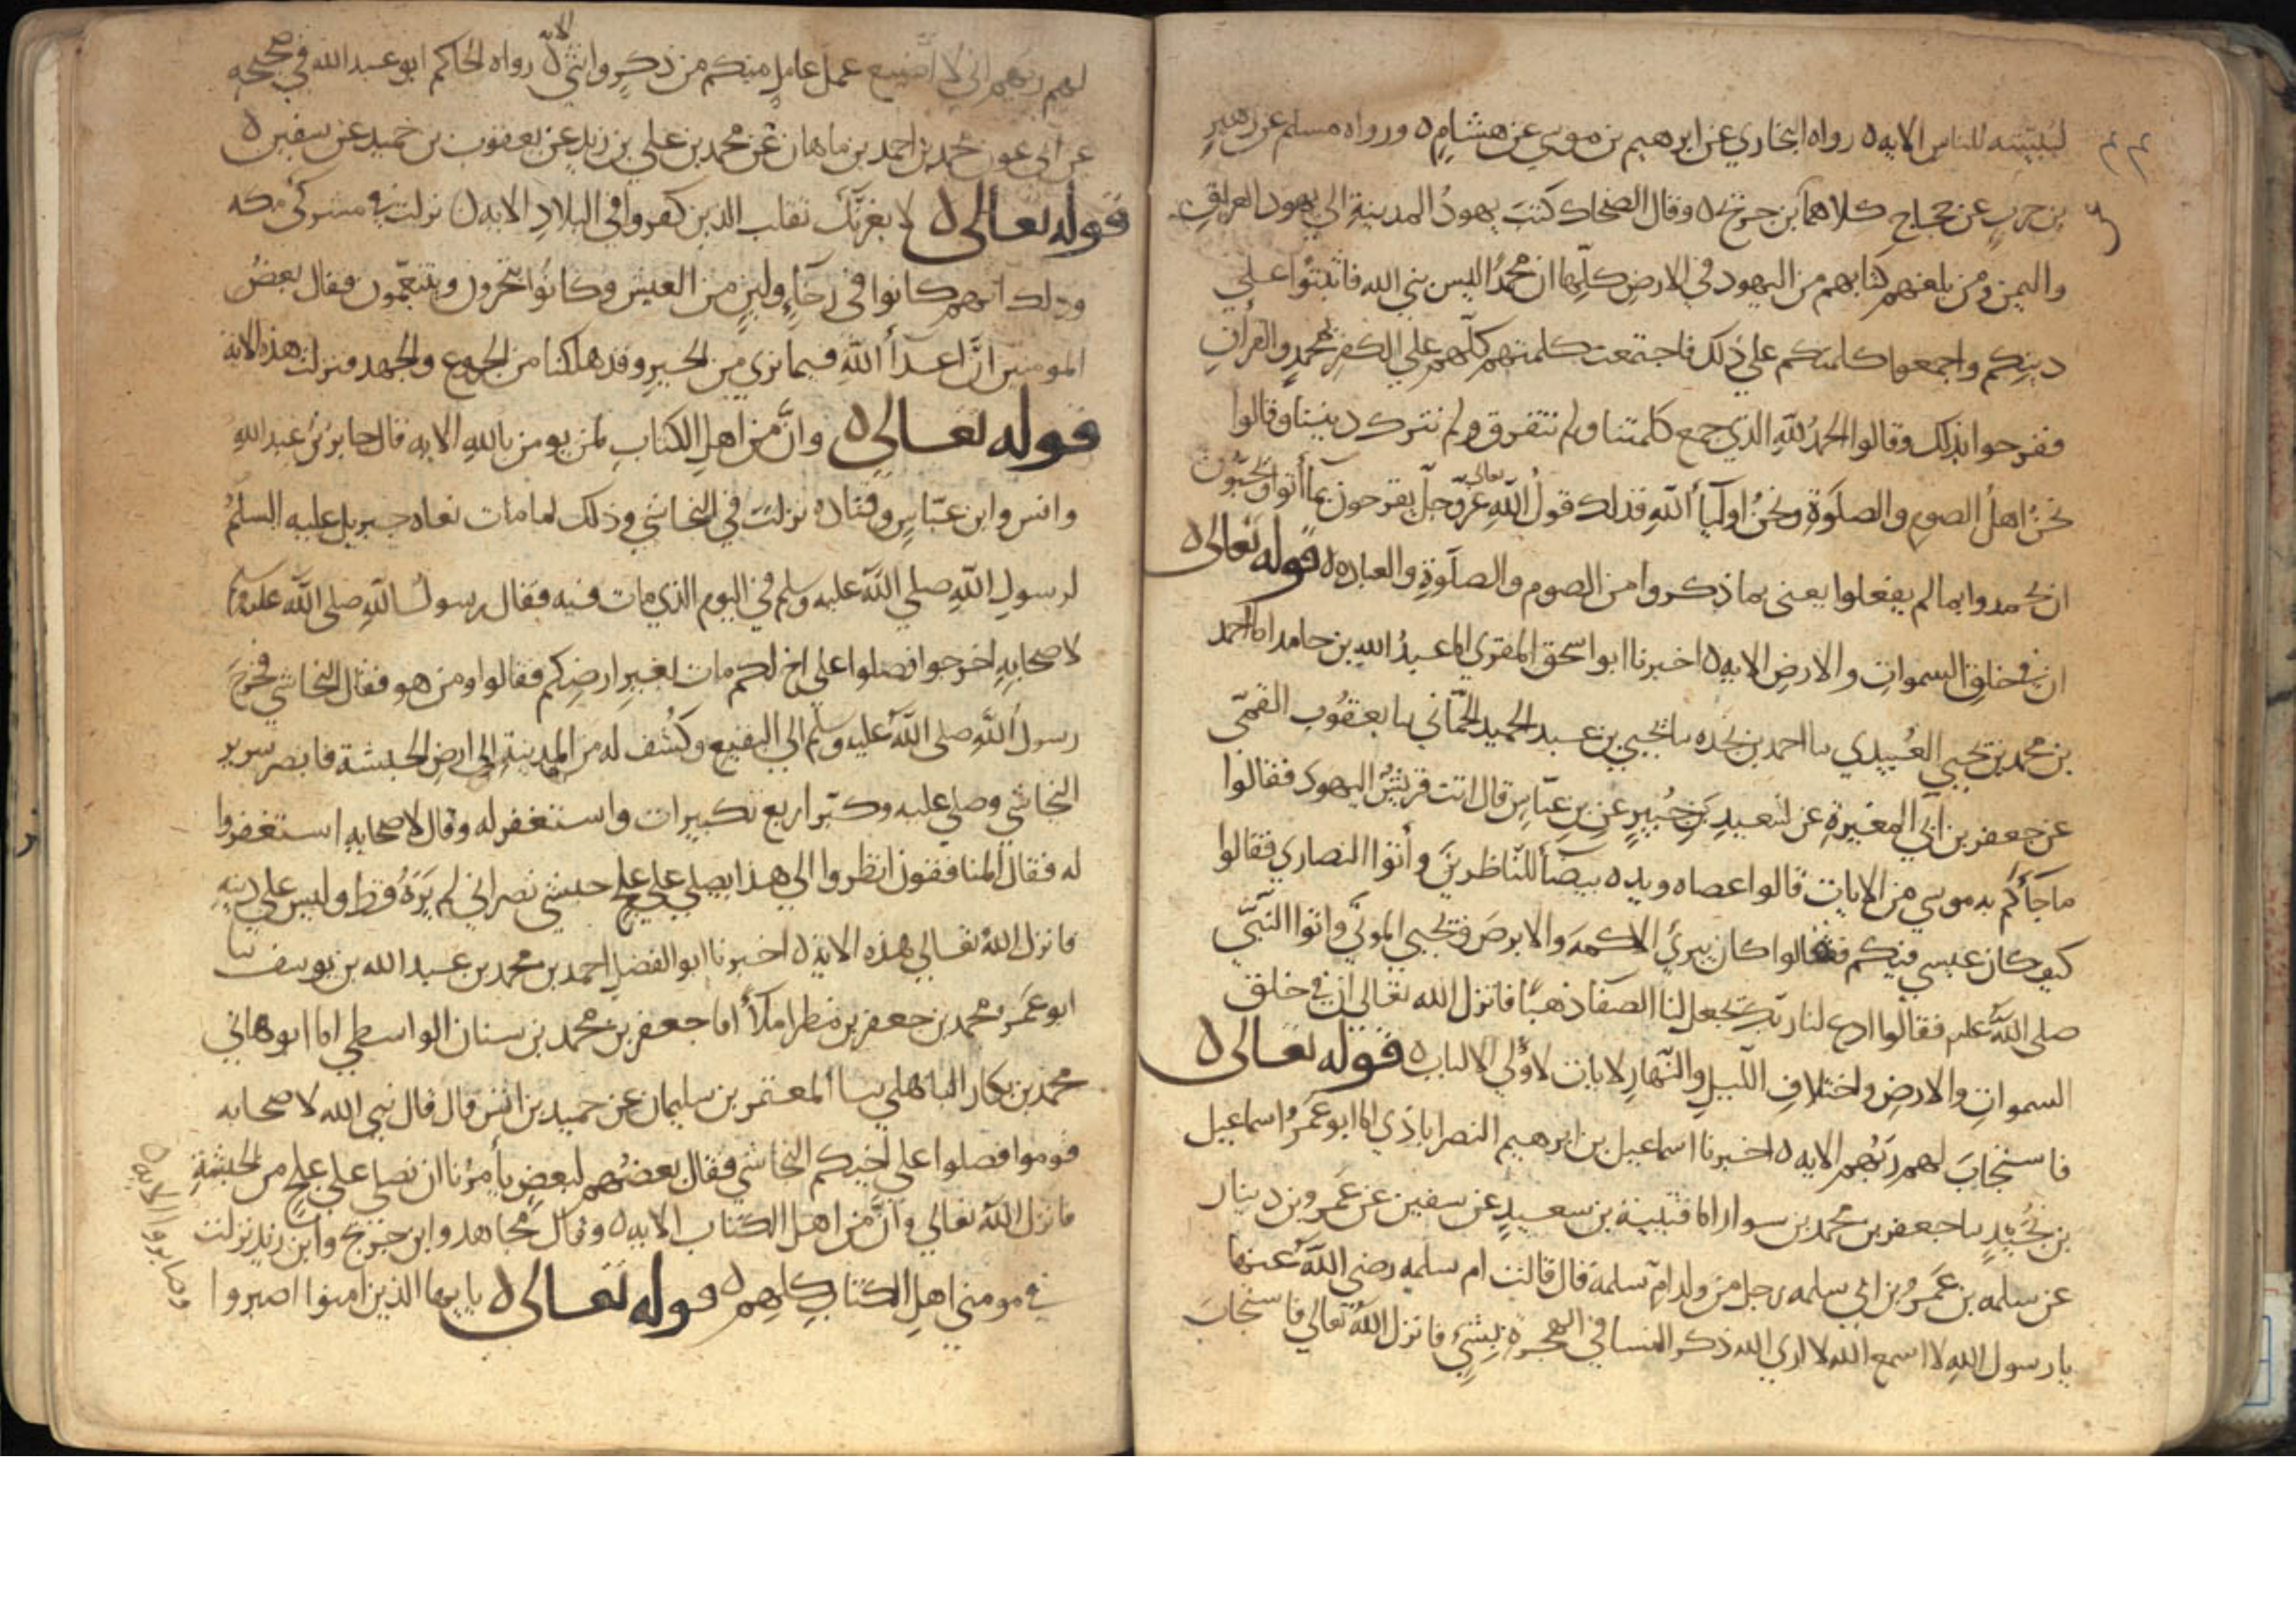 ليبيننه للناس الايه ه رواه البخاري عن ابرهيم بن موسي عن هشام ه ورواه مسلم عن زهير
بن حرب عن حجاج كلاهما بن جريج ه وقال الضحاك كتب يهود المدينة الي يهود العراق
واليمن ومن بلغهم كتابهم من اليهود في الارض كلها ان محمدا ليس نبي الله فاثبتوا علي
دينكم واجمعوا كلمتكم علي ذلك فاجتمعت كلمتهم كلهم علي الكفر بمحمد والقران
ففرحوا بذلك وقالوا الحمد لله الذي جمع كلمتنا ولم نتفرق ولم نترك ديننا وقالوا
نحن اهل الصوم والصلوة ونحن اوليآ الله فذلك قول الله تعالي عز وجل يفرحون بما أتوا ويحبون
ان يحمدوا بما لم يفعلوا يعني بما ذكروا من الصوم والصلوة والعباده ه قوله تعالى ه
ان في خلق السموات والارض الايه ه اخبرنا ابو اسحق المقري انا عبد الله بن حامد انا احمد
بن محمد بن يحيي العبيدي نا احمد بن نجده نا يحيي بن عبد الحميد الحماني نا يعقوب القمي
عن جعفر بن ابي المغيرة عن سعيد بن جبير عن بن عباس قال اتت قريش اليهود فقالوا
ما جآءكم به موسي من الايات قالوا عصاه ويده بيضآ للناظرين وأتوا النصاري فقالوا
كيف كان عيسي فيكم فقالوا كان يبرئ الاكمه والابرص ويحيي الموتي واتوا النبي
صلى الله عليه فقالوا ادع لنا ربك يجعل لنا الصفا ذهبا فانزل الله تعالى ان في خلق
السموات والارض واختلاف الليل والنهار لايات لاولي الالباب ه قوله تعالى ه
فاستجاب لهم ربهم الايه ه اخبرنا اسماعيل بن ابرهيم النصراباذي انا ابو عمرو اسماعيل
بن نجيد نا جعفر بن محمد بن سوار انا قتيبة بن سعيد عن سفين عن عمرو بن دينار
عن سلمه بن عمرو بن ابي سلمه رجل من ولد ام سلمة قال قالت ام سلمه رضي الله عنها
يا رسول الله لا اسمع الله لا اري الله ذكر النسا في الهجرة بشئ فانزل الله تعالي فاستجاب
لهم ربهم اني لا أضيع عمل عامل منكم من ذكر وانثى الايه رواه الحاكم ابو عبد الله في صحيحه
عن ابي عون محمد بن احمد بن ماهان عن محمد بن علي بن زيد عن يعقوب بن حميد عن سفين ه
قوله تعالى ه لا يغرنك تقلب الذين كفروا في البلاد الايه ه نزلت في مشركي مكه
وذلك انهم كانوا في رخآء ولين من العيش وكانوا يتجرون ويتنعمون فقال بعض
المومنين ان اعدآ الله فيما نري من الخير وقد هلكنا من الجوع والجهد فنزلت هذه الاية
قوله تعالى ه وان من اهل الكتاب لمن يومن بالله الايه قال جابر بن عبد الله
وانس وابن عباس وقتاده نزلت في النجاشي وذلك لما مات نعاه جبريل عليه السلم
لرسول الله صلي الله عليه وسلم في اليوم الذي مات فيه فقال رسول الله صلى الله عليه وسلم
لاصحابه اخرجوا فصلوا علي اخ لكم مات بغير ارضكم فقالوا ومن هو فقال النجاشي فخرج
رسول الله صلى الله عليه وسلم الي البقيع وكشف له من المدينة الي ارض الحبشة فابصر سرير
النجاشي وصلي عليه وكبر اربع تكبيرات واستغفر له وقال لاصحابه استغفروا
له فقال المنافقون انظروا الي هذا يصلي علي علج حبشي نصراني لم يره قط وليس علي دينه
فانزل الله تعالي هذه الاية ه اخبرنا ابو الفضل احمد بن محمد بن عبد الله بن يوسف نا
ابو عمرو محمد بن جعفر بن مطر املاأ انا جعفر بن محمد بن سنان الواسطي انا ابو هاني
محمد بن بكار الباهلي نا المعتمر بن سليمان عن حميد بن انس قال قال نبي الله لاصحابه
قوموا فصلوا على اخيكم النجاشي فقال بعضهم لبعض يأمرنا ان نصلي علي علج من الحبشة
فانزل الله تعالي وان من اهل الكتاب الايه ه وقال مجاهد وابن جريج وابن زيد نزلت
في مومني اهل الكتاب كلهم ه قوله تعالى ه يا يها الذين امنوا اصبروا
وصابروا الايه ه